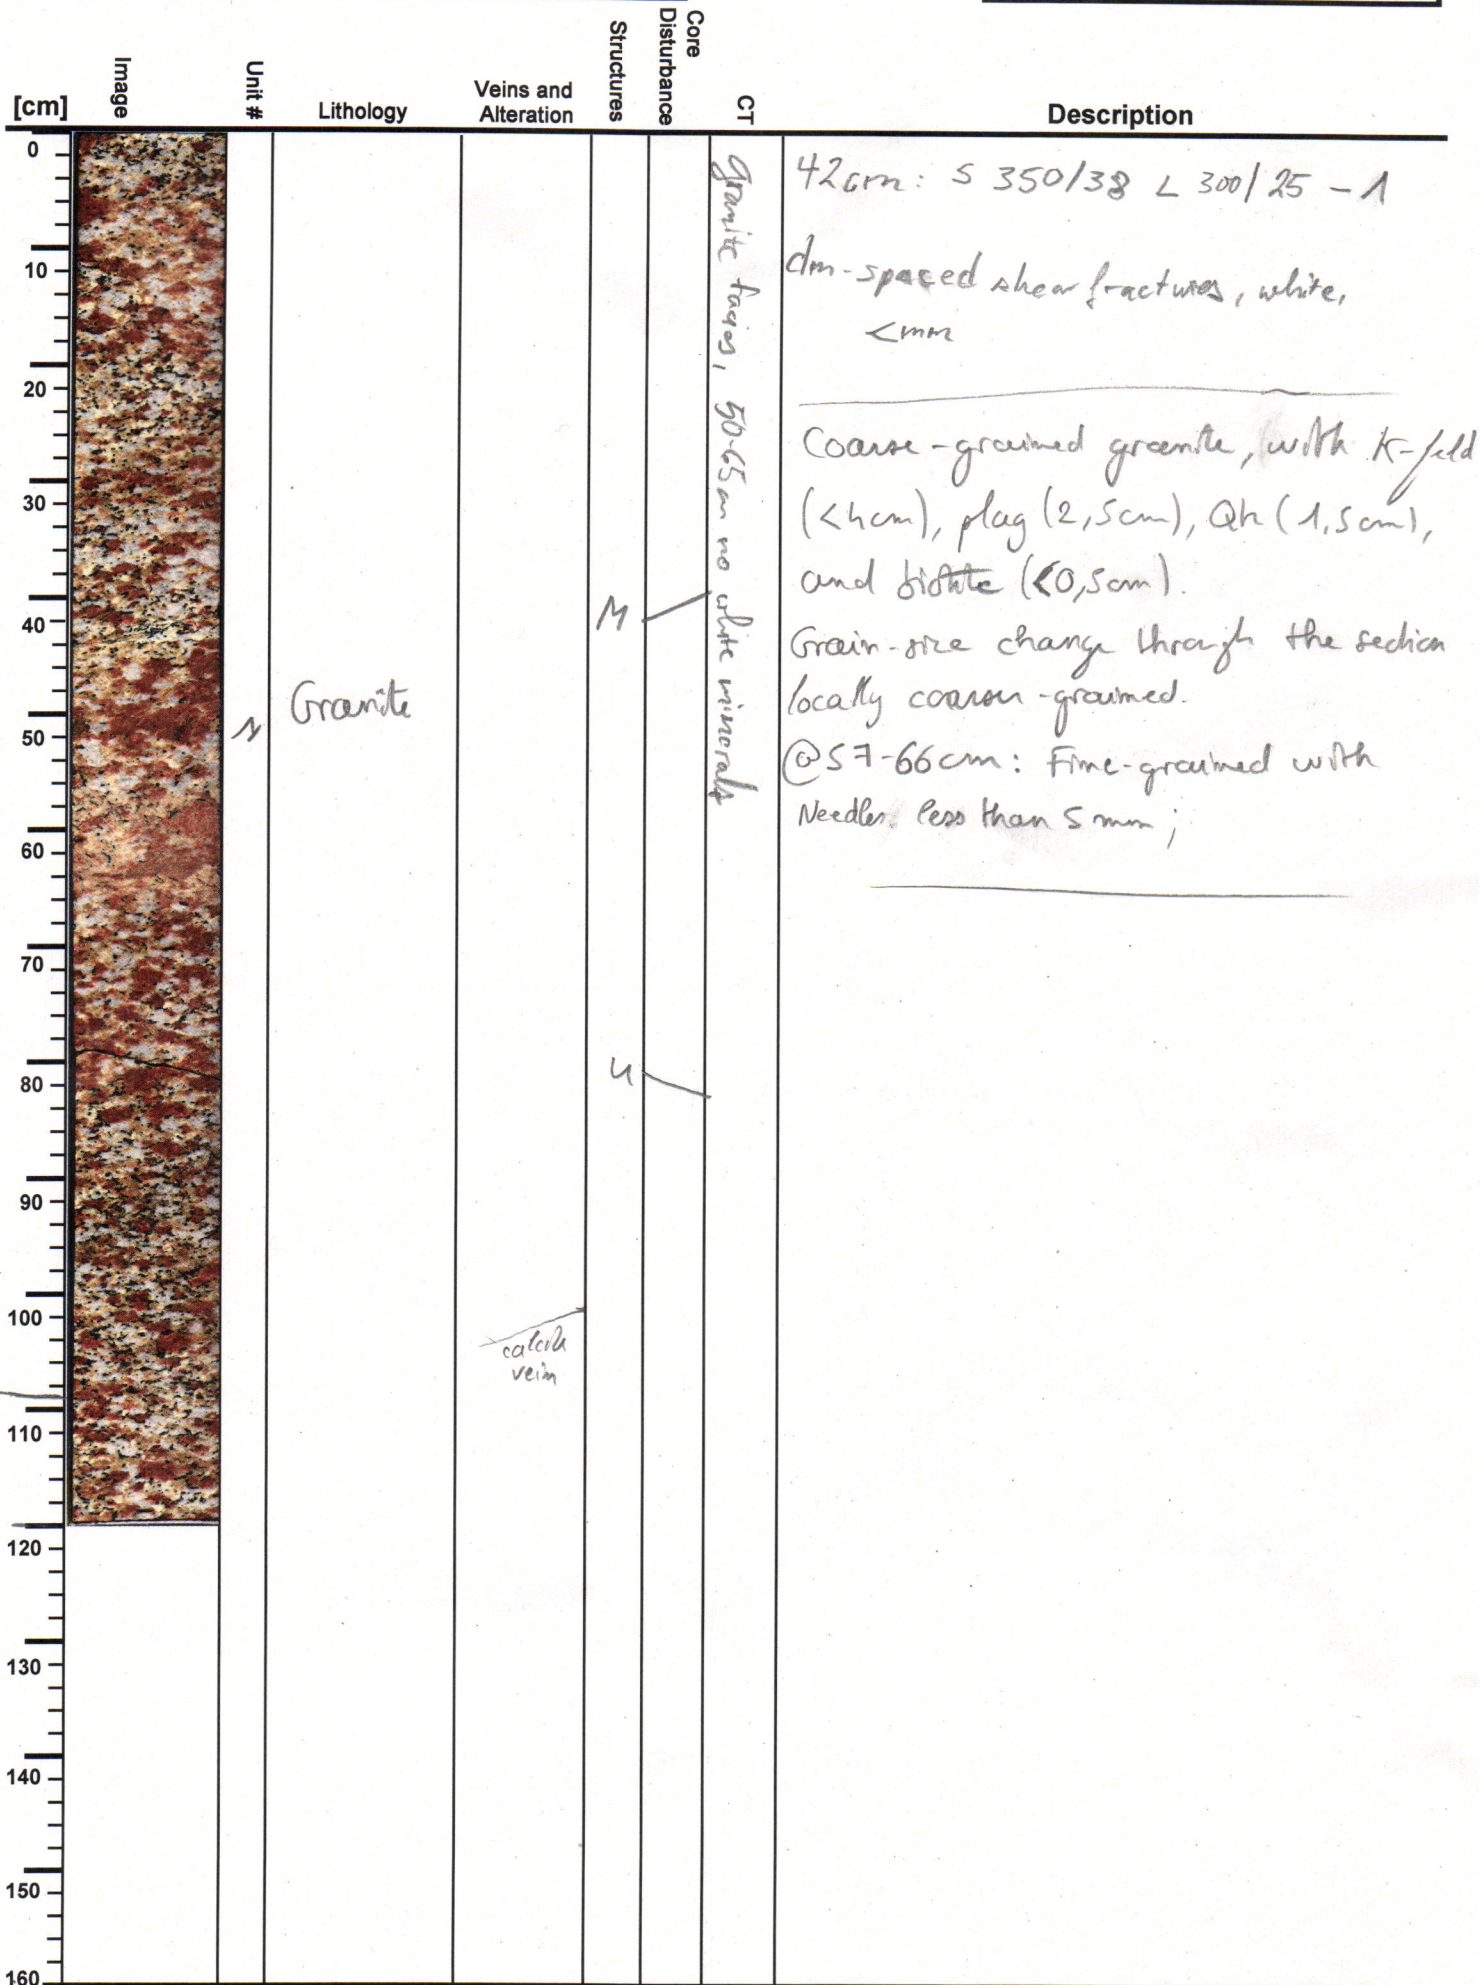 [cm]
Image
Unit #
Lithology
Veins and
Alteration
Structures
Core
Disturbance
CT
Description
0
10
20
30
40
50
60
70
80
90
100
110
120
130
140
150
160
1
Granite
calcite
vein
M
U
granite facies, 50-65cm no white minerals
42cm: S 350/38 L 300/25 - 1
dm-spaced shear fractures, white,
<mm
Coarse-grained granite, with K-feld
(<4cm), plag (2,5cm), Qtz (1,5cm),
and biotite (<0,5cm).
Grain-size change through the section
locally coarser-grained.
@57-66cm: Fine-grained with
Needles less than 5mm;